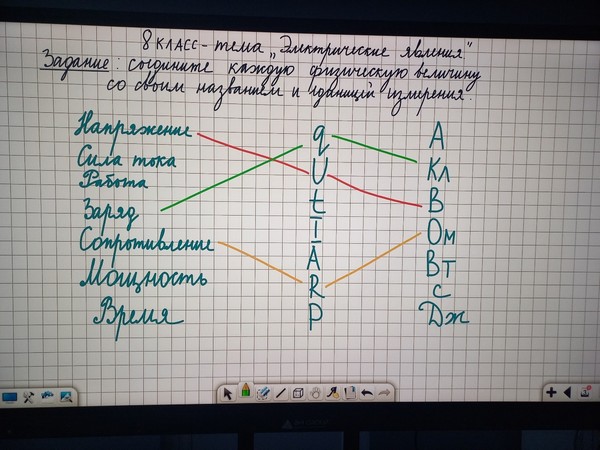 8 класс - тема „Электрические явления"
Задание: соедините каждую физическую величину
со своим названием и единицей измерения.
Напряжение q А
Сила тока U Кл
Работа t В
Заряд I Ом
Сопротивление A Вт
Мощность R с
Время P Дж